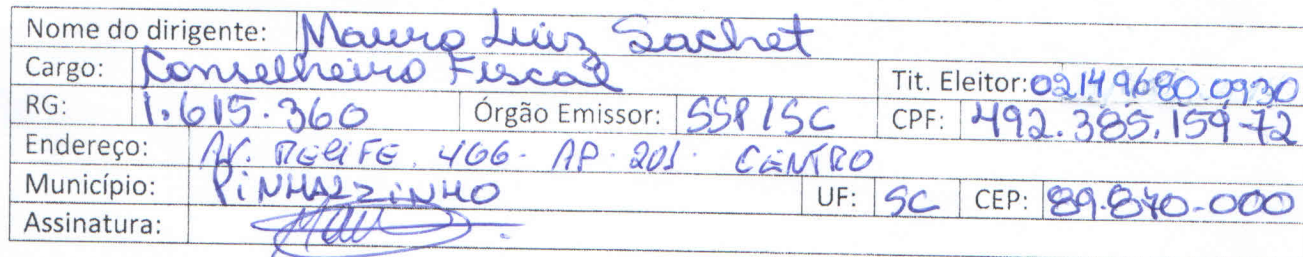 Nome do dirigente: Mauro Luiz Sachet
Cargo: Conselheiro Fiscal Tit. Eleitor: 021496800930
RG: 1.615.360 Órgão Emissor: SSP/SC CPF: 492.385.159-72
Endereço: AV. RECIFE, 466 - AP. 201. CENTRO
Município: PINHALZINHO UF: SC CEP: 89.870-000
Assinatura: